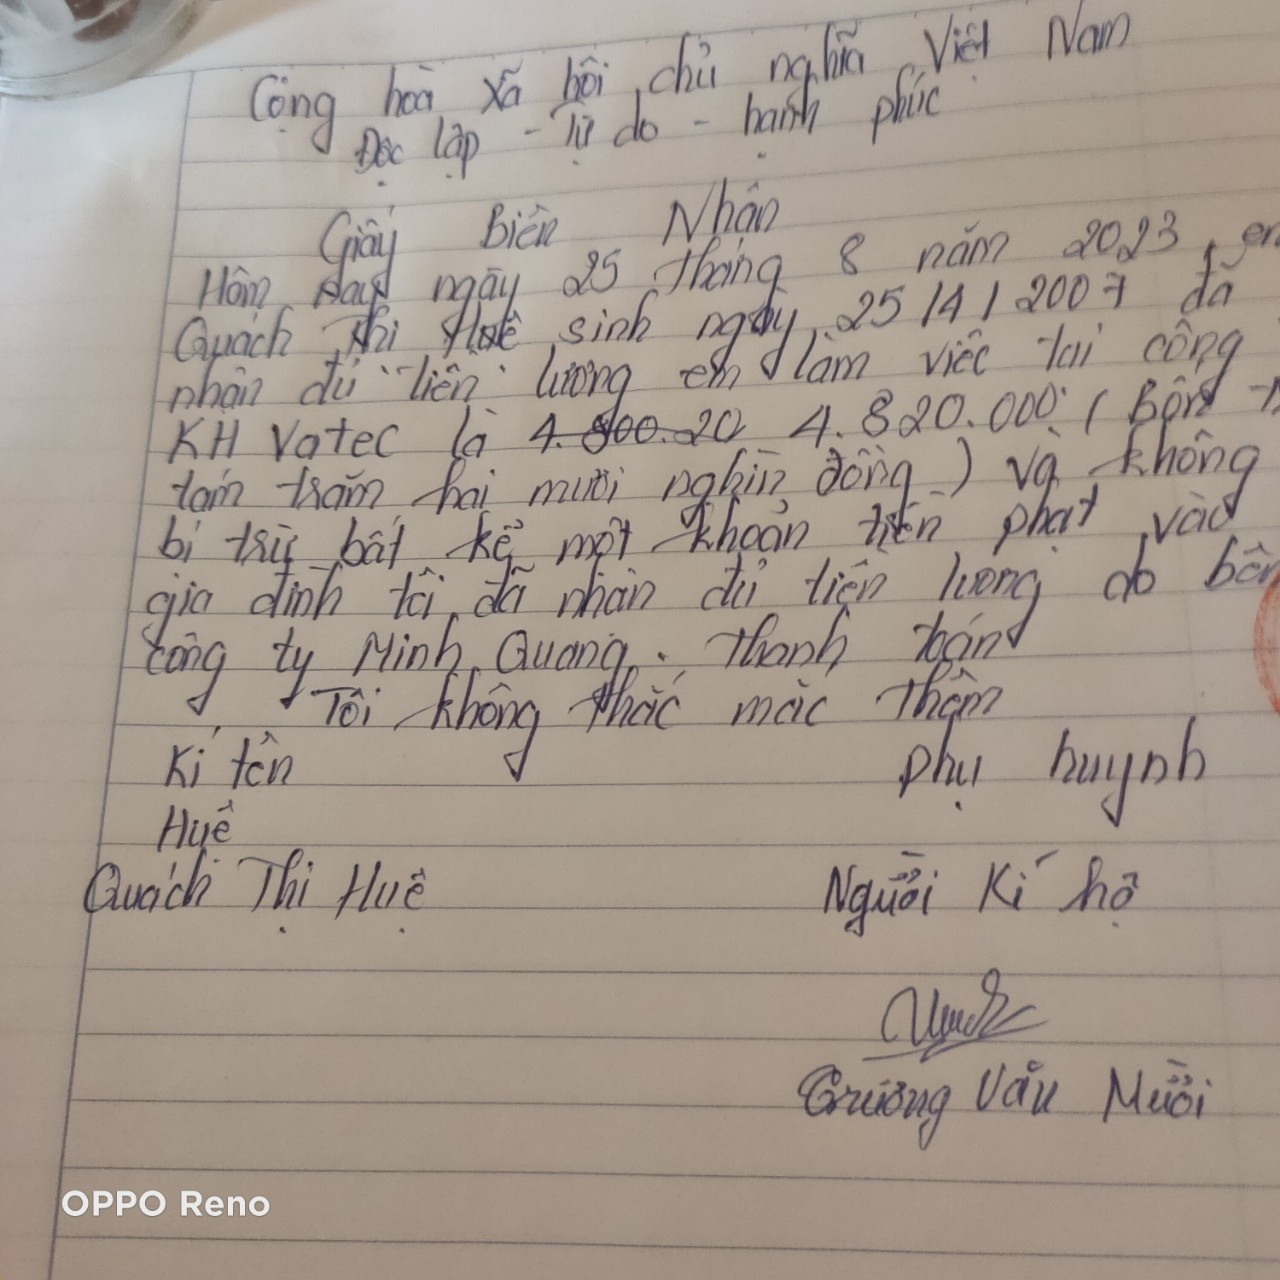 Cộng hoà xã hội chủ nghĩa Việt Nam
Độc lập - Tự do - hạnh phúc
Giấy Biên Nhận
Hôm nay ngày 25 tháng 8 năm 2023, em
Quách Thị Huệ sinh ngày 25/4/2007 đã
nhận đủ tiền lương em làm việc tại công
KH Vatec là 4.800.20 4.820.000 (Bốn
tám trăm hai mươi nghìn đồng) và không
bị trừ bất kể một khoản tiền phạt vào
gia đình tôi đã nhận đủ tiền lương do bên
công ty Minh Quang. Thanh toán
Tôi không thắc mắc thêm
Kí tên
phụ huynh
Huệ
Quách Thị Huệ
Người Kí hộ
Trương Văn Mười
OPPO Reno